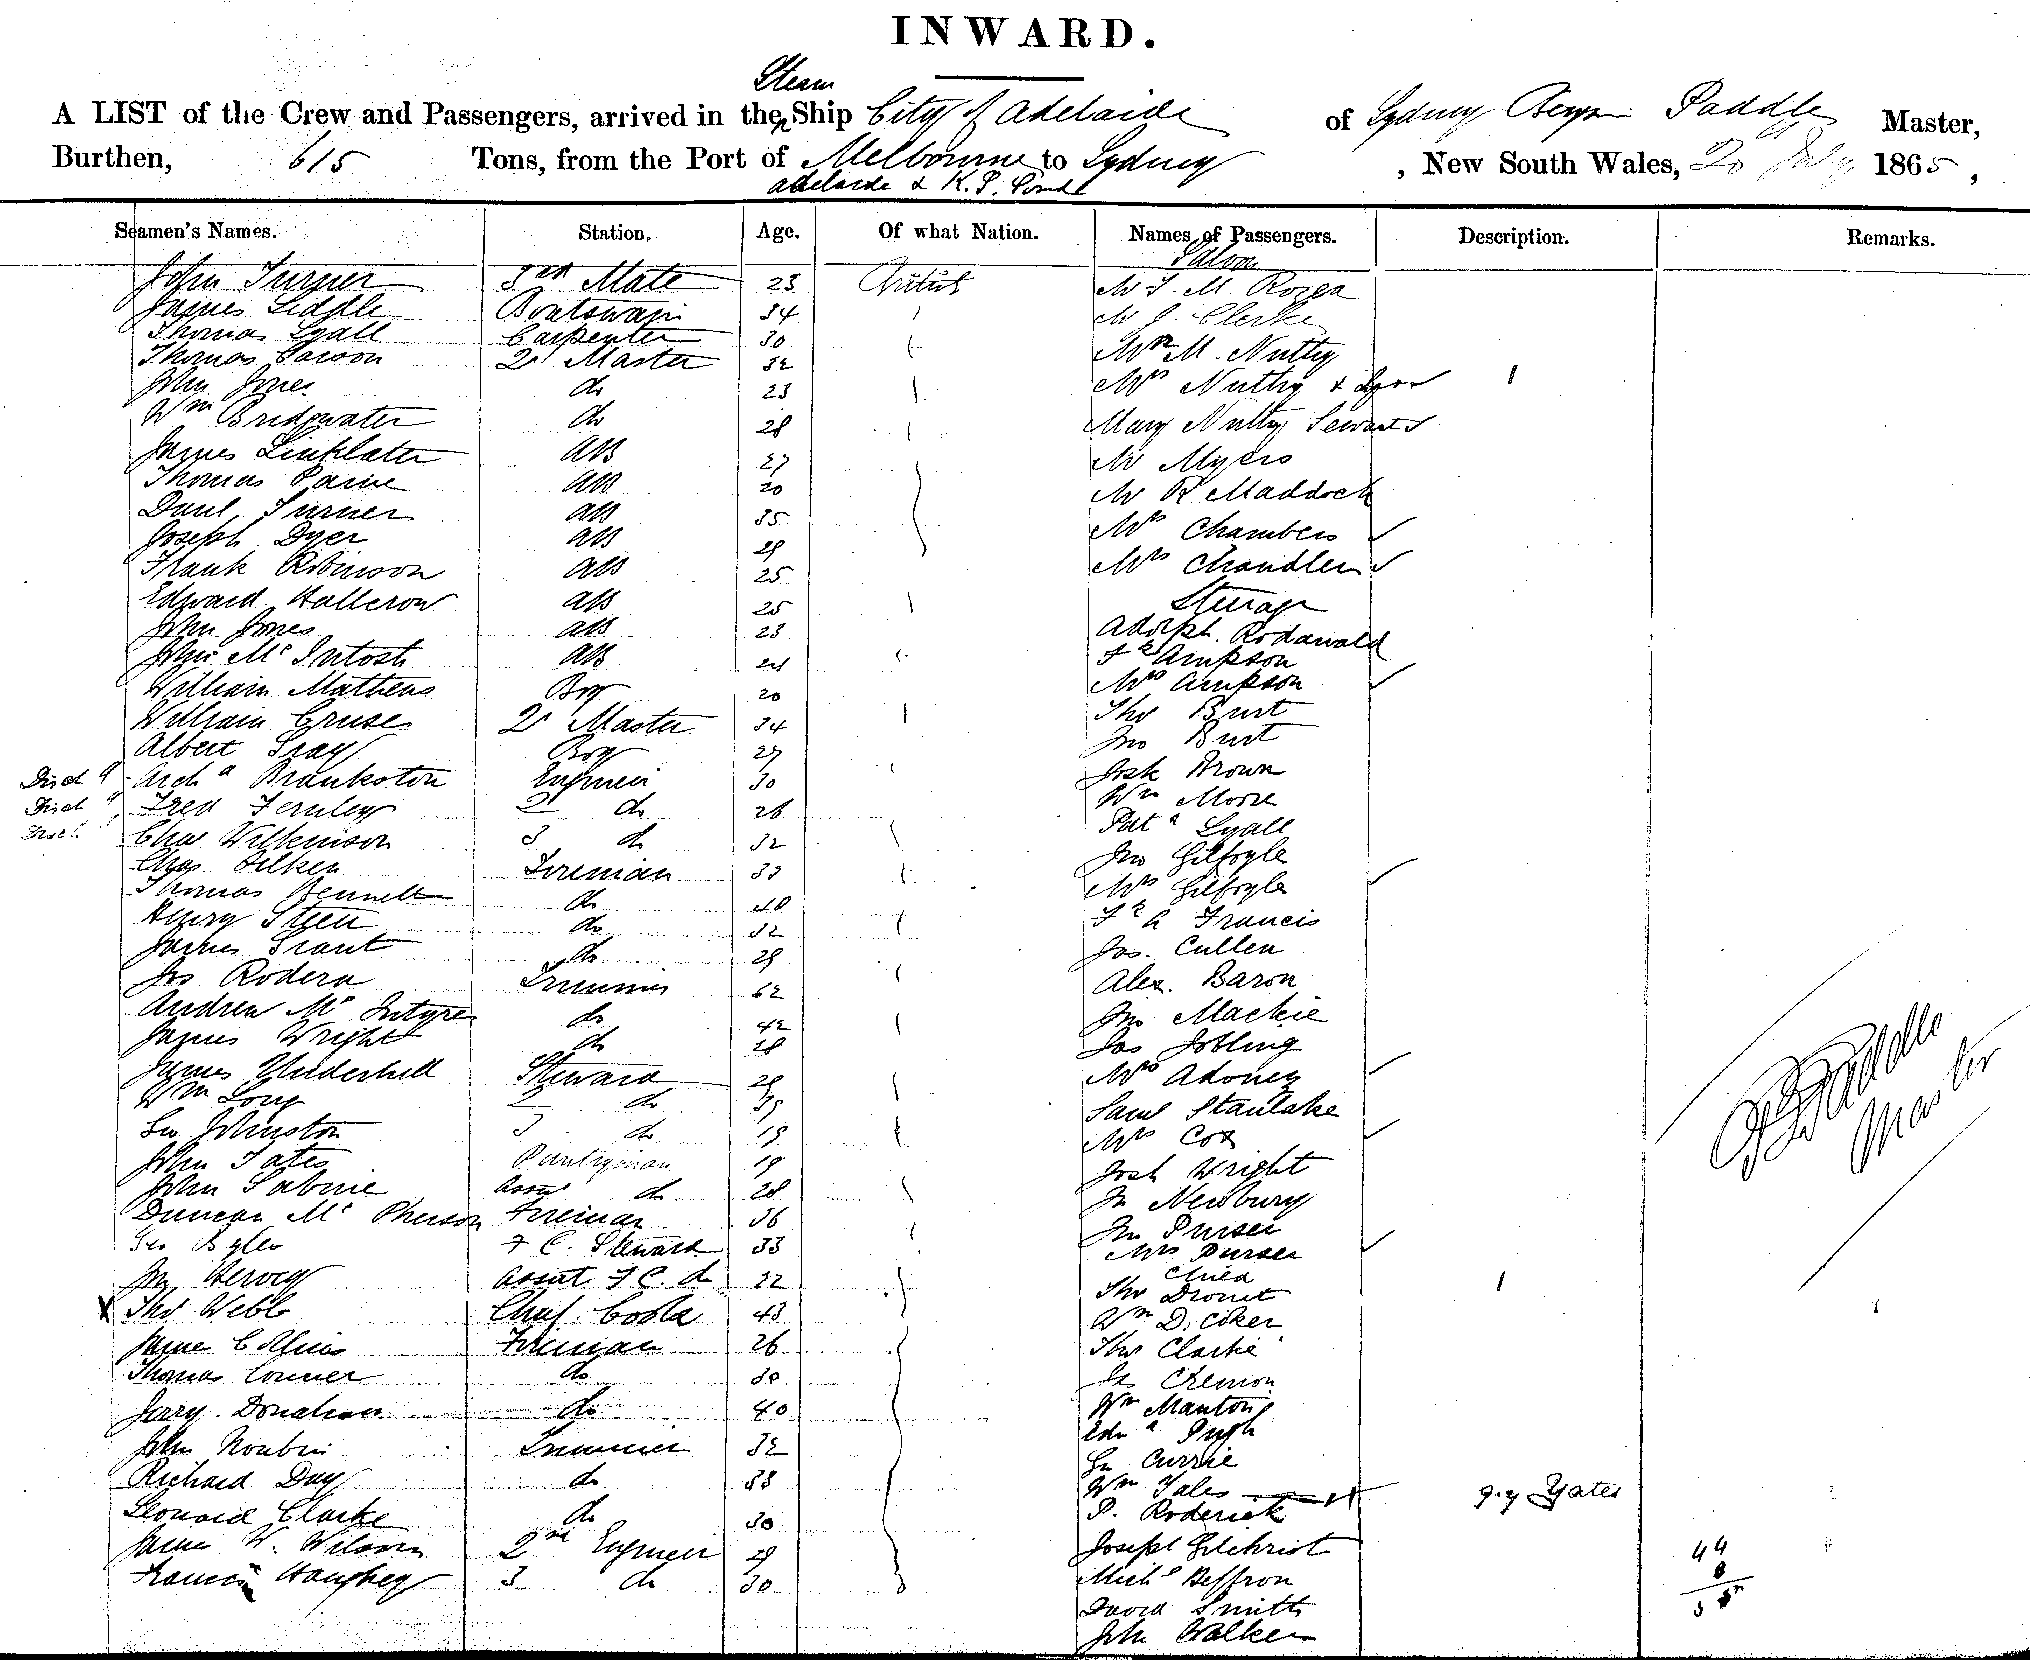 INWARD.
Steam
A LIST of the Crew and Passengers, arrived in the Ship City of Adelaide of Sydney Paddle Master,
Burthen, 615 Tons, from the Port of Melbourne to Sydney, New South Wales, 20 July 1865,
Adelaide & K. G. Sound
Seamen's Names. Station. Age. Of what Nation. Names of Passengers. Description. Remarks.
Saloon
John Turner 3rd Mate 23 British Mr
James Liddle Boatswain 34 Mr J. Clerke
Thomas Lyall Carpenter 30
Thomas Carson 2d Master 32 Mr M. Nutty
John Jones do 23 Mrs Nutty &
Wm Bridgwater do 28 Mary Nutty Servant
James Linklater AB 27 Mr Myers
Thomas Paine AB 20 Mr R Maddock
Danl Turner AB 35 Mrs Chambers
Joseph Dyer AB 29 Mrs Chandler
Frank Robinson AB 25
Edward Halleron AB 25 Steerage
John Jones AB 23 Adolph Rodawald
John McIntosh AB 24 Simpson
William Mathews Boy 20 Mrs Simpson
William Cruse 2d Master 34 Thos Burt
Albert Gray Boy 27 Jno Burt
Disch Archd Brankston Engineer 30 Josh Brown
Disch Fred Fernley 2 do 26 Wm Moore
Disch Chas Wilkinson 3 do 32 Patk Lyall
Chas Filken Fireman 33 Jno Gilfoyle
Thomas Bennett do 40 Mrs Gilfoyle
Henry Steen do 32 Francis
James Grant do 29 Jas. Cullen
Jos Rodera Trimmer 62 Alex. Baron
Andrew McIntyre do 42 Jno Mackie
James Wright do 28 Jas Jobling
James Underhill Steward 29 Mrs Adoney
Wm Long 2 do 39 Saml Stanlake
Geo Johnston 3 do 19 Mrs Cox
John Yates Pantryman 19 Josh Wright
John Sabine Asst do 28 Jn Newbury
Duncan McPherson Fireman 36 Jno Purser
Geo Byles F C. Steward 33 Mrs Purser
Child
Jno Hervey Assist F C. do 22 Thos Drouet
X Thos Webb Chief Cook 43 Wm D. Coker
James Collins Fireman 26 Thos Clarke
Thomas Conner do 30 Cremon
Jerry Donahoe do 40 Wm Manton
Edwd Pugh
John Trimmer 32 Currie
Richard Day do 38 Wm Yales q.y Yates
Leonard Clarke do 30 P. Roderick
James W. Wilson 2nd Engineer 29 Joseph Gilchrist
Francis Haughey 3 do 30 Michl Heffron
David Smith
John Walker
Paddle
Master
44
8